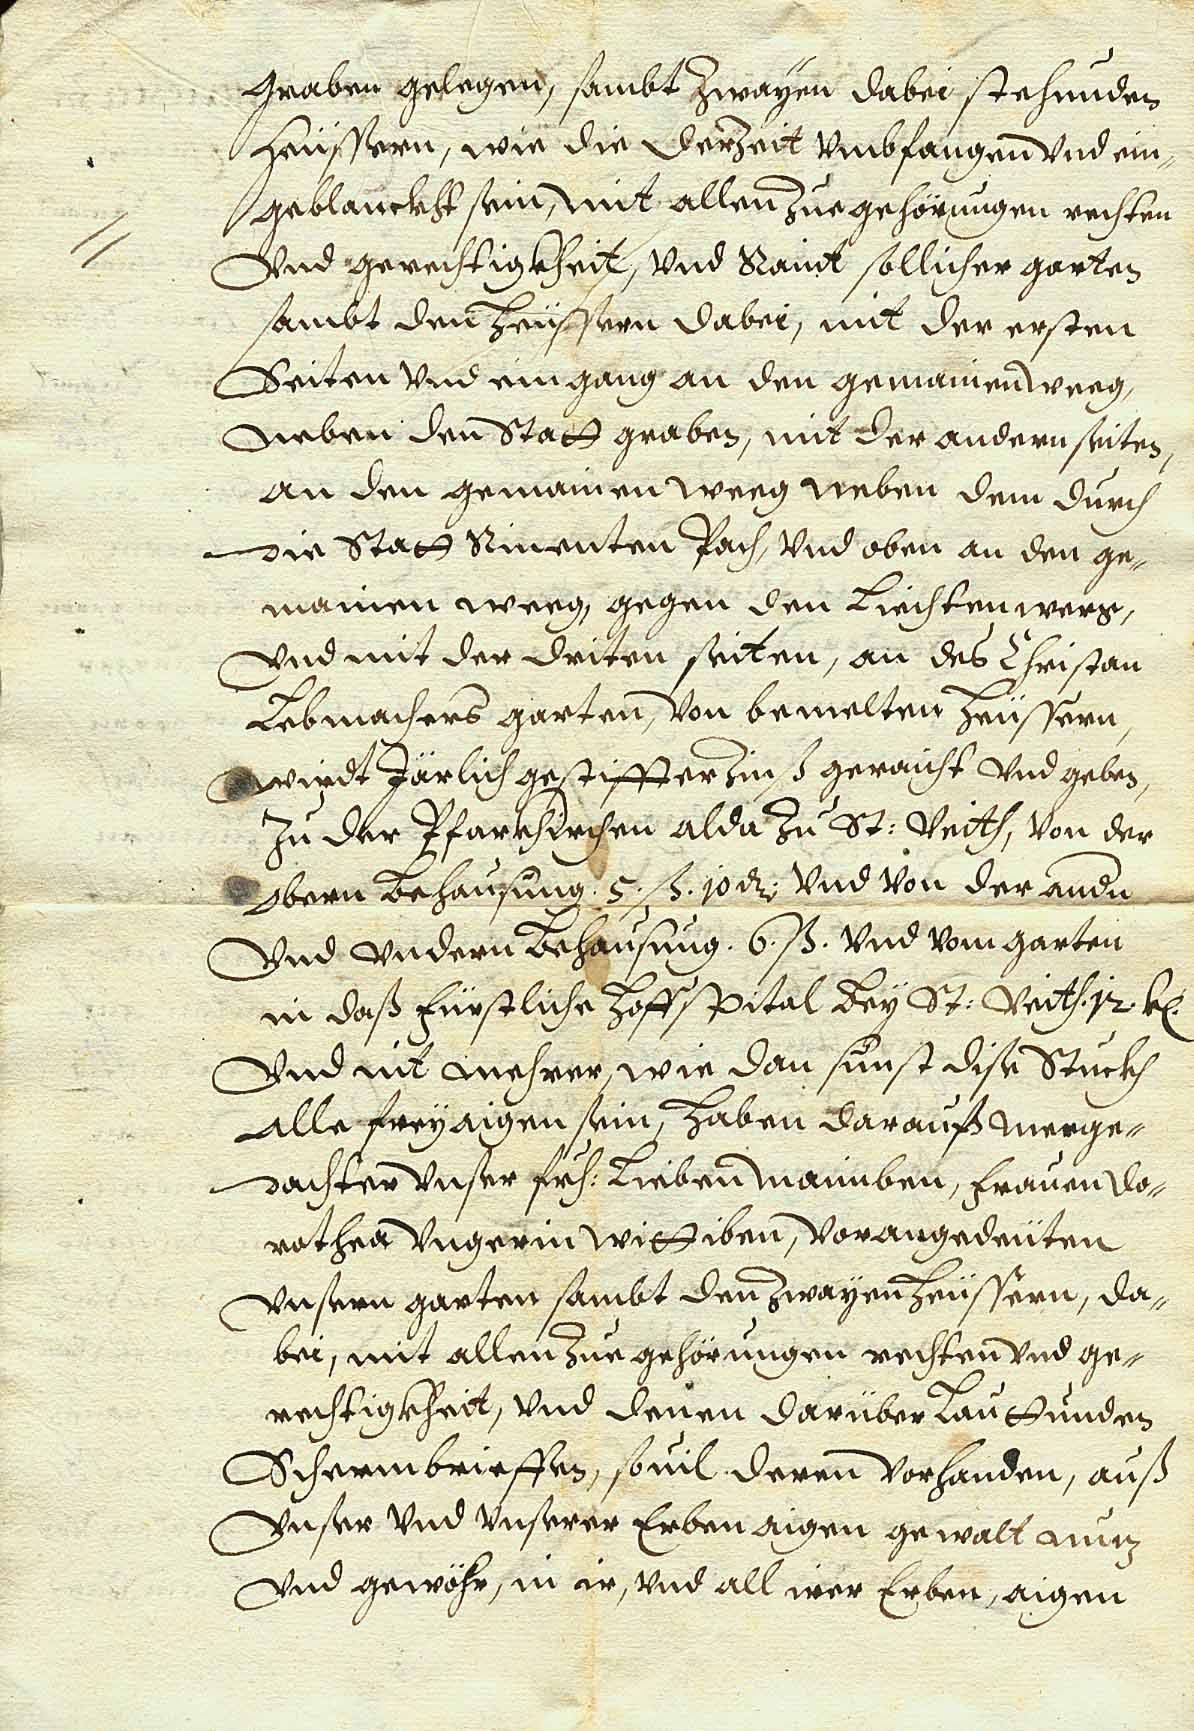 graben gelegen, sambt zwayen dabei stehunden
Heüssern, wie die derzeit vmbfangen vnd ein„
geblanckht sein, mit allen zuegehörungen rechten
Vnd gerechtigkheit, vnd Raint sollicher garten
sambt den Heüssern dabei, mit der ersten
Seiten vnd eingang an den gemainen weeg,
neben den Statt graben, mit der andern seiten,
an den gemainen weeg neben dem durch
die Statt Rinenten Pach, vnd oben an den ge„
mainen weeg, gegen den Liechten werg,
Vnd mit der driten seiten, an des Christan
Lebmachers garten, von bemelten Heüssern,
wirdt Järlich gestiffter Zinß geraicht vnd geben,
Zu der Pfarrkirchen alda zu St: Veith, von der
obern Behausung. 5. ß. 10 ₰: vnd von der andn
Vnd vndern Behausung. 6. ß. vnd vom garten
in daß Fürstliche Hoffspital bey St: Veith. 12. kr.
Vnd nit mehrer, wie dan sunst dise Stuckh
alle freyaigen sein, Haben darauf merge„
dachter vnser frh: Lieben maimben, Frauen Do„
rothea Vngerin Wittiben, vorangedeüten
vnsern garten sambt den zwayen Heüssern, da„
bei, mit allen zuegehörungen rechten vnd ge„
rechtigkheit, vnd denen darüber Lauttunden
Schermbrieffen, souil deren vorhanden, auß
Vnser vnd vnserer Erben aigen gewalt nutz
Vnd gewöhr, in ir, vnd all irer Erben, aigen